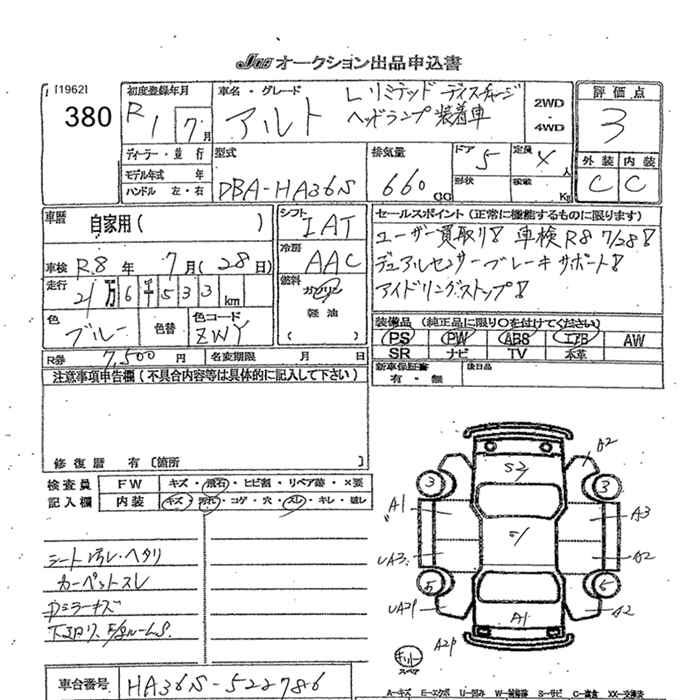 JU オークション出品申込書
[1962]
380
初度登録年月
R1 7月
車名・グレード
アルト
Lリミテッド ディスチャージ
ヘッドランプ装着車
2WD
・
4WD
評価点
3
外装 内装
C C
ディーラー・並行
モデル年式 年
ハンドル 左・右
型式
DBA-HA36S
排気量
660 CC
ドア
5
形状
定員
4人
積載 Kg
車歴
自家用( )
車検 R8年 7月(28日)
走行
2万6千533km
色
ブルー
色替
色コード
ZWY
シフト
IAT
冷房
AAC
燃料
ガソリン
軽油
( )
セールスポイント(正常に機能するものに限ります)
ユーザー買取り! 車検R8 7/28!
デュアルセンサーブレーキサポート!
アイドリングストップ!
装備品(純正品に限り〇を付けてください)
PS PW ABS エアB AW
SR ナビ TV 本革
新車保証書
有・無
後日品
R券 7,500円 名変期限 月 日
注意事項申告欄(不具合内容等は具体的に記入して下さい)
修復歴 有 〔箇所 〕
検査員
記入欄
FW キズ・飛石・ヒビ割・リペア跡・×要
内装 キズ・汚れ・コゲ・穴・スレ・キレ・破レ
シート汚レ・ヘタリ
カーペットスレ
ドミラーキズ
S2
A2
3
3
A1
A3
G/
UA3
A2
5
5
UA2P
A2
A1
A2P
キット
スペア
車台番号 HA36S-522786
A-キズ E-エクボ U-凹み W-補修跡 S-サビ C-腐食 XX-交換済